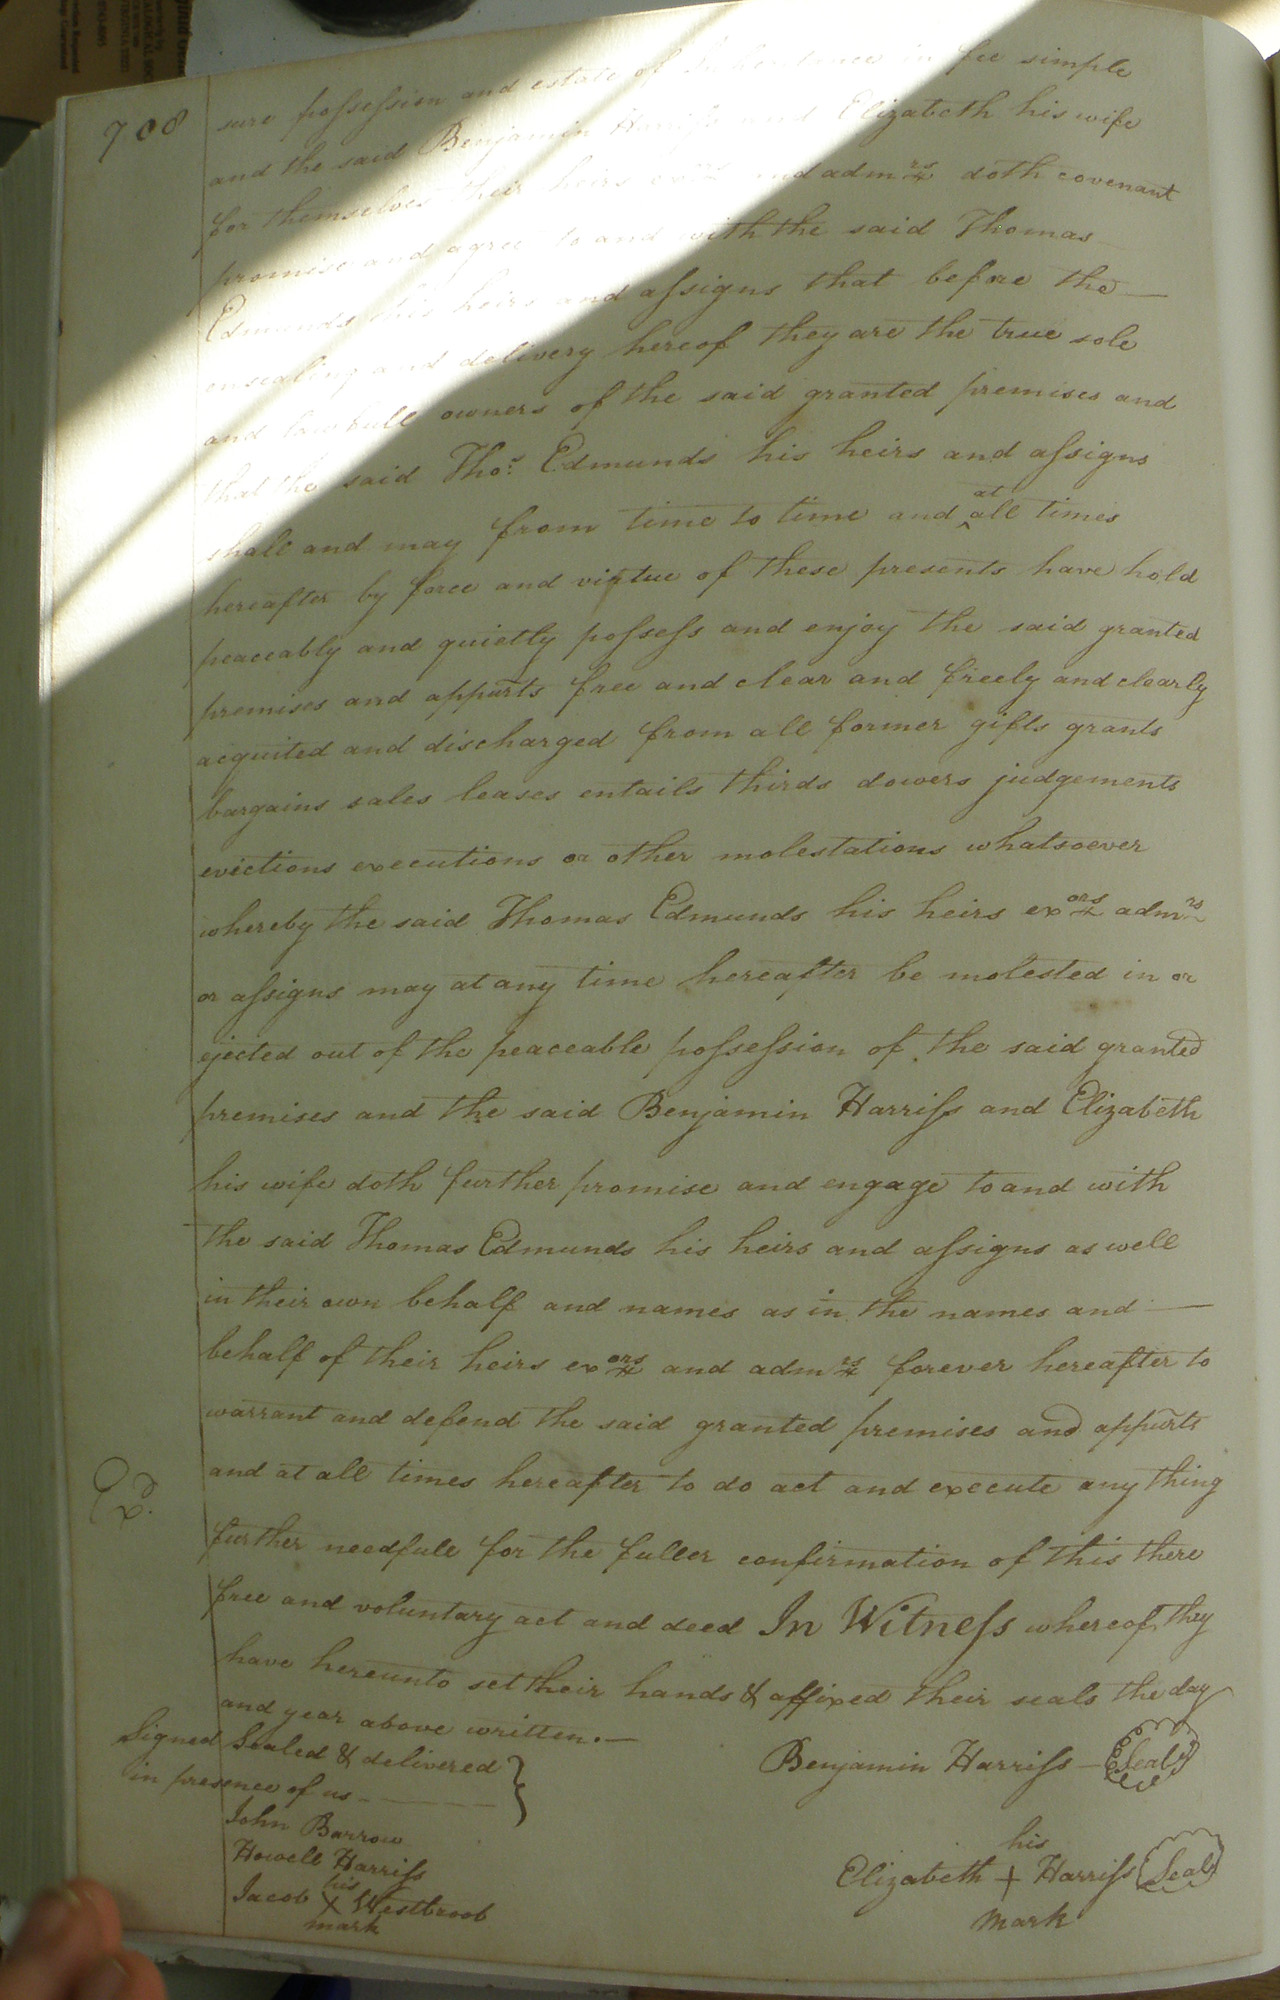 708
sure possession and estate of Inheritance in fee simple
and the said Benjamin Harriss and Elizabeth his wife
for themselves their heirs exors and admrs doth covenant
promise and agree to and with the said Thomas
Edmunds his heirs and assigns that before the
ensealing and delivery hereof they are the true sole
and lawfull owners of the said granted premises and
that the said Thos. Edmunds his heirs and assigns
shall and may from time to time and at all times
hereafter by force and virtue of these presents have hold
peaceably and quietly possess and enjoy the said granted
premises and appurts free and clear and freely and clearly
acquited and discharged from all former gifts grants
bargains sales leases entails thirds dowers judgements
evictions executions or other molestations whatsoever
whereby the said Thomas Edmunds his heirs exors admrs
or assigns may at any time hereafter be molested in or
ejected out of the peaceable possession of the said granted
premises and the said Benjamin Harriss and Elizabeth
his wife doth further promise and engage to and with
the said Thomas Edmunds his heirs and assigns as well
in their own behalf and names as in the names and
behalf of their heirs exors and admrs forever hereafter to
warrant and defend the said granted premises and appurts
and at all times hereafter to do act and execute any thing
Exd.
further needfull for the fuller confirmation of this there
free and voluntary act and deed In Witness whereof they
have hereunto set their hands & affixed their seals the day
and year above written.
Signed Sealed & delivered
in presence of us
Benjamin Harriss Seal
John Barrow
Howell Harriss
his
Jacob X Westbroob
mark
his
Elizabeth + Harriss Seal
mark